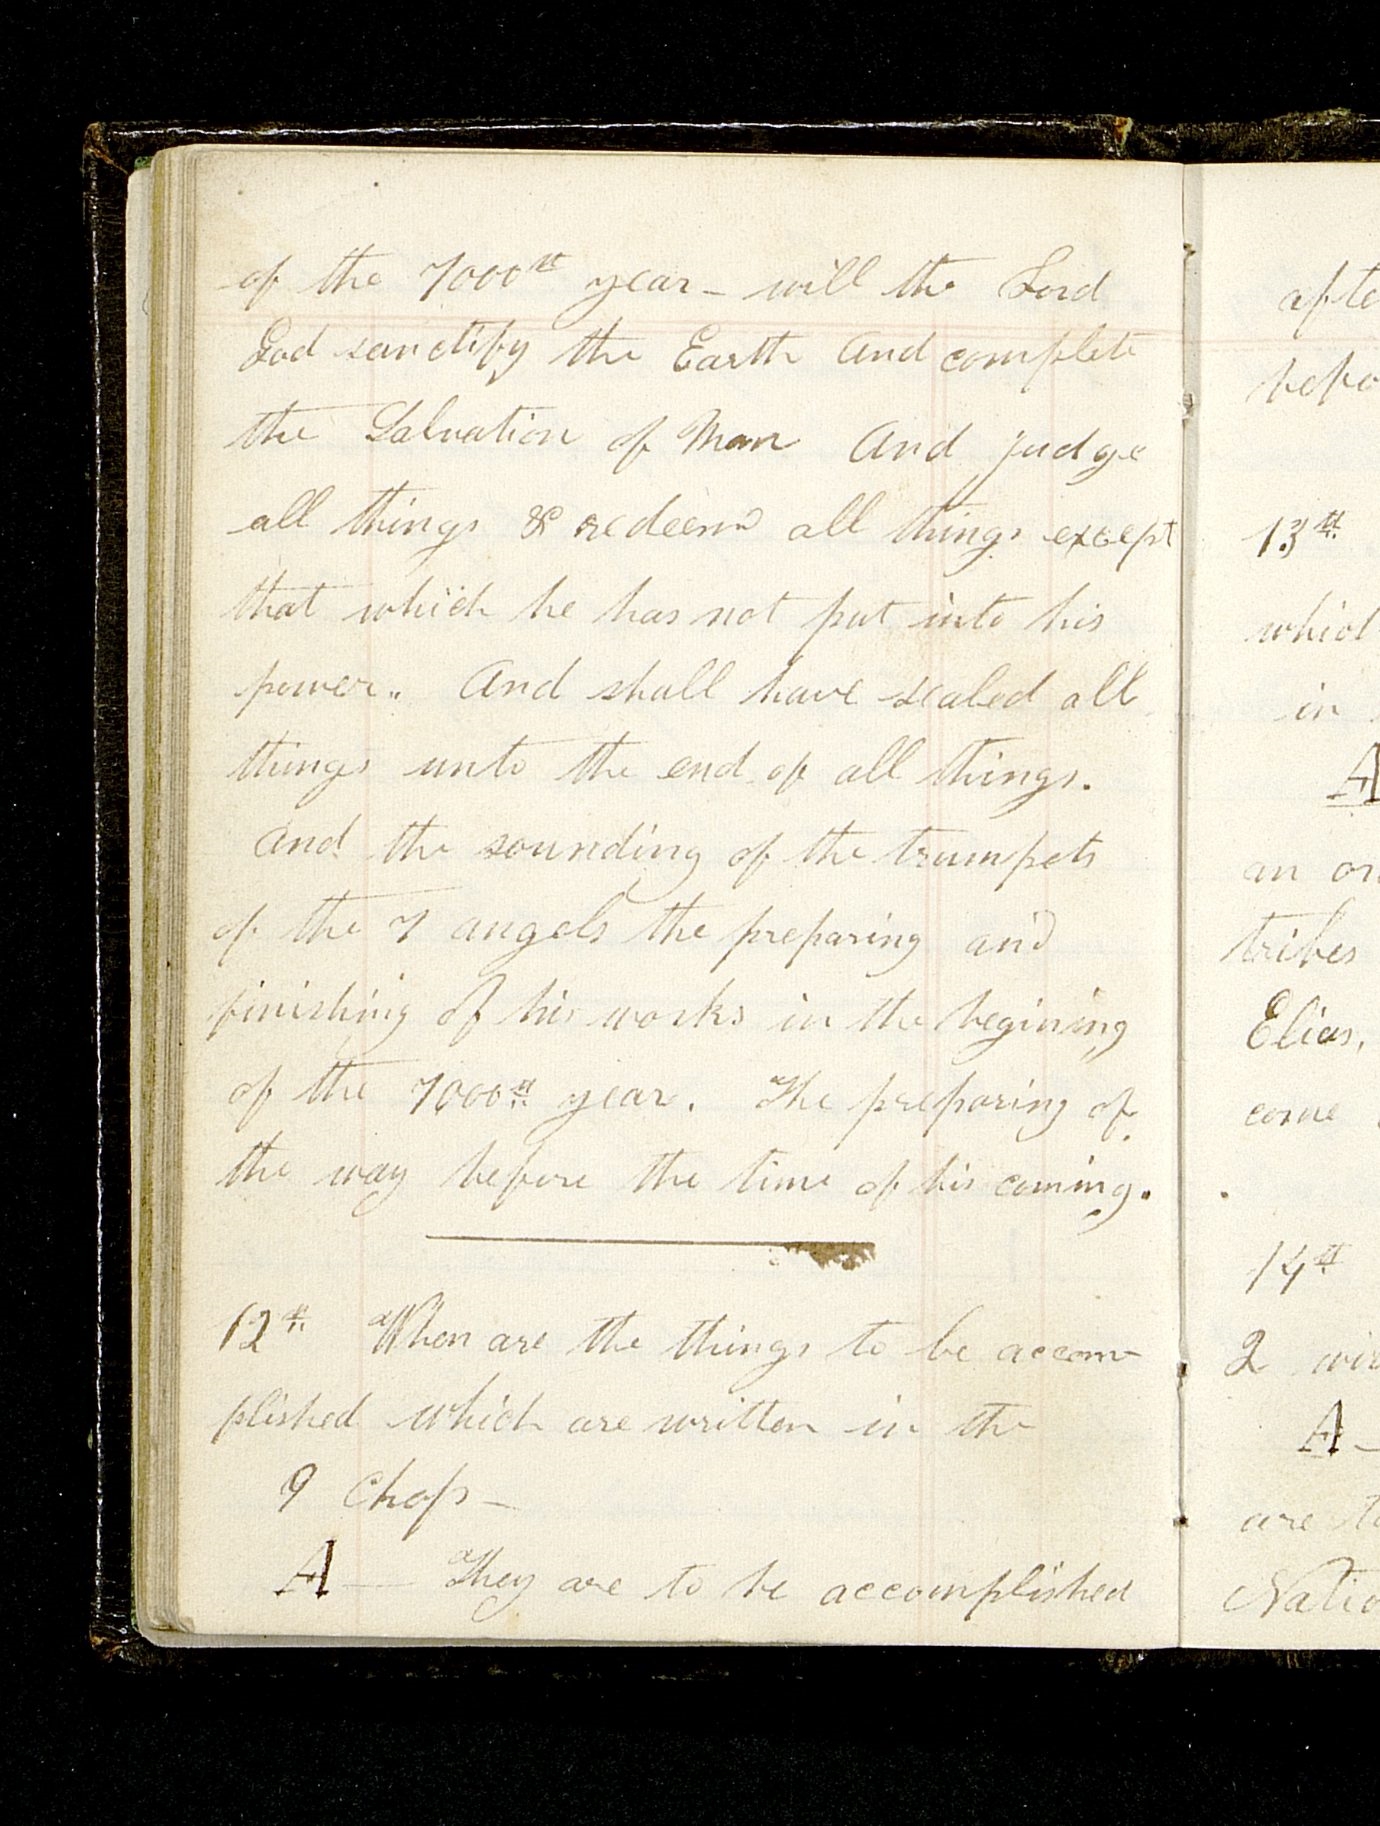 of the 7000th year - will the Lord
God sanctify the Earth and complete
the Salvation of Man And judge
all things & redeem all things except
that which he has not put into his
power.. And shall have sealed all
things unto the end of all things.
and the sounding of the trumpets
of the 7 angels the preparing and
finishing of his works in the begining
of the 7000th year. The preparing of
the way before the time of his coming.
12th When are the things to be accom-
plished which are written in the
9 Chap -
A — They are to be accomplished
afte
befo
13th
which
in
A
an or
tribes
Elias,
come
14th
2 wi
A -
are to
Natio